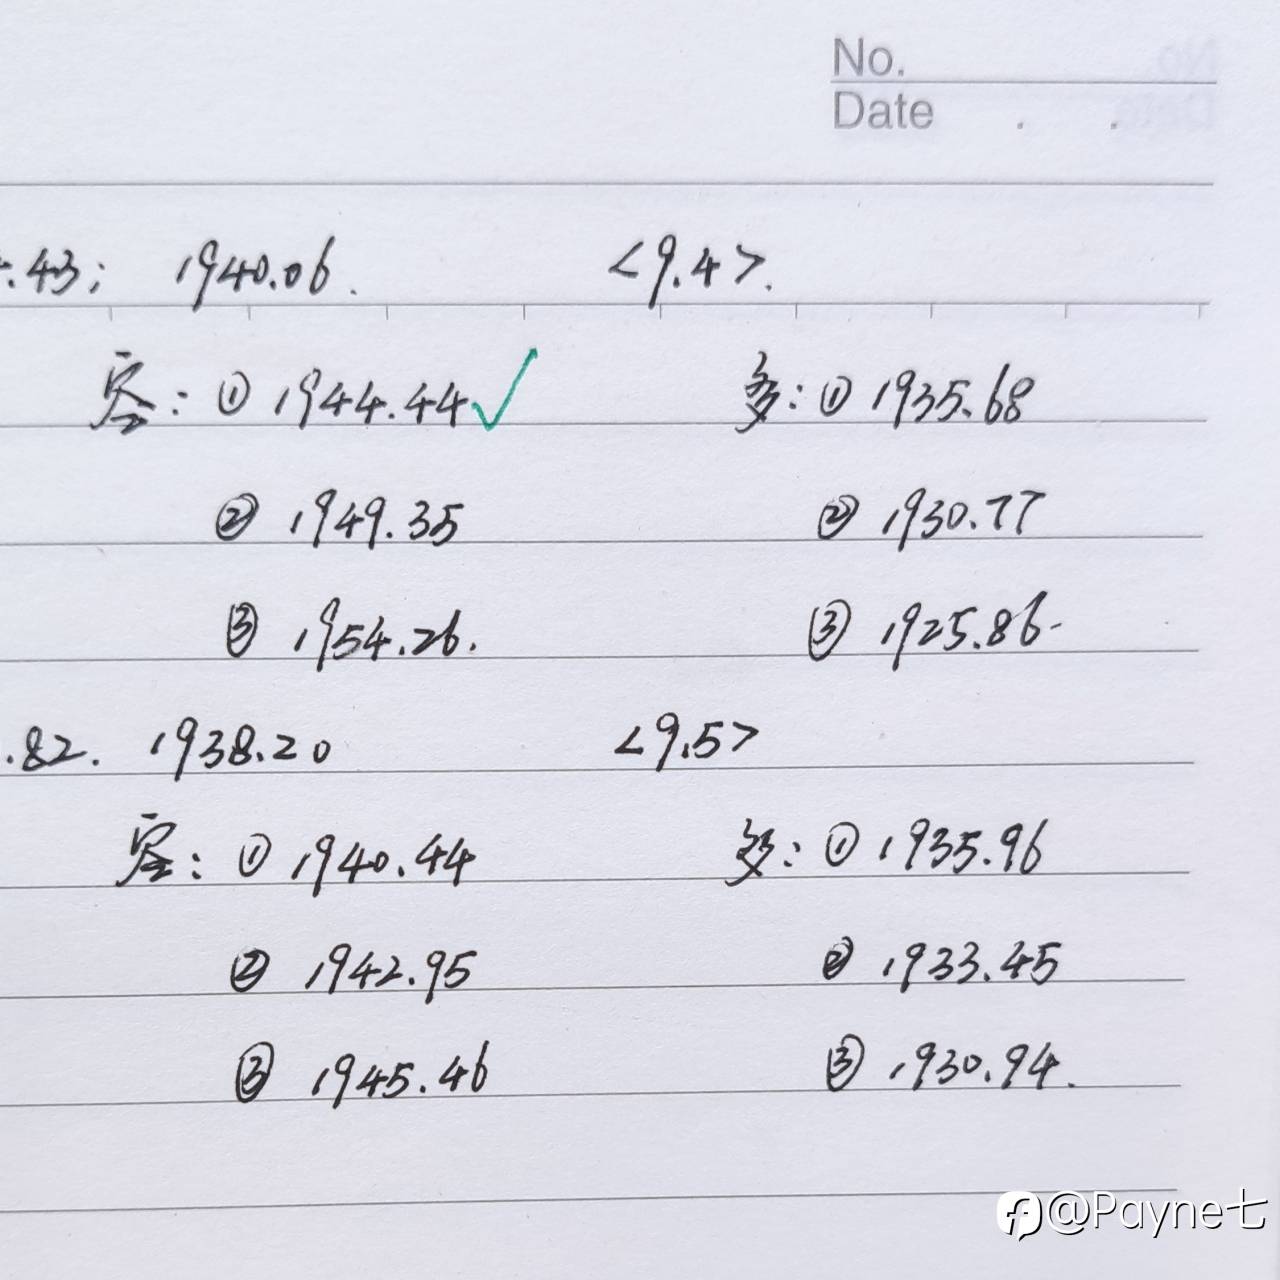 No.
Date . .
.43; 1940.06. <9.4>.
空: ① 1944.44✓ 多: ① 1935.68
② 1949.35 ② 1930.77
③ 1954.26. ③ 1925.86.
.82. 1938.20 <9.5>
空: ① 1940.44 多: ① 1935.96
② 1942.95 ② 1933.45
③ 1945.46 ③ 1930.94.
@Payne七